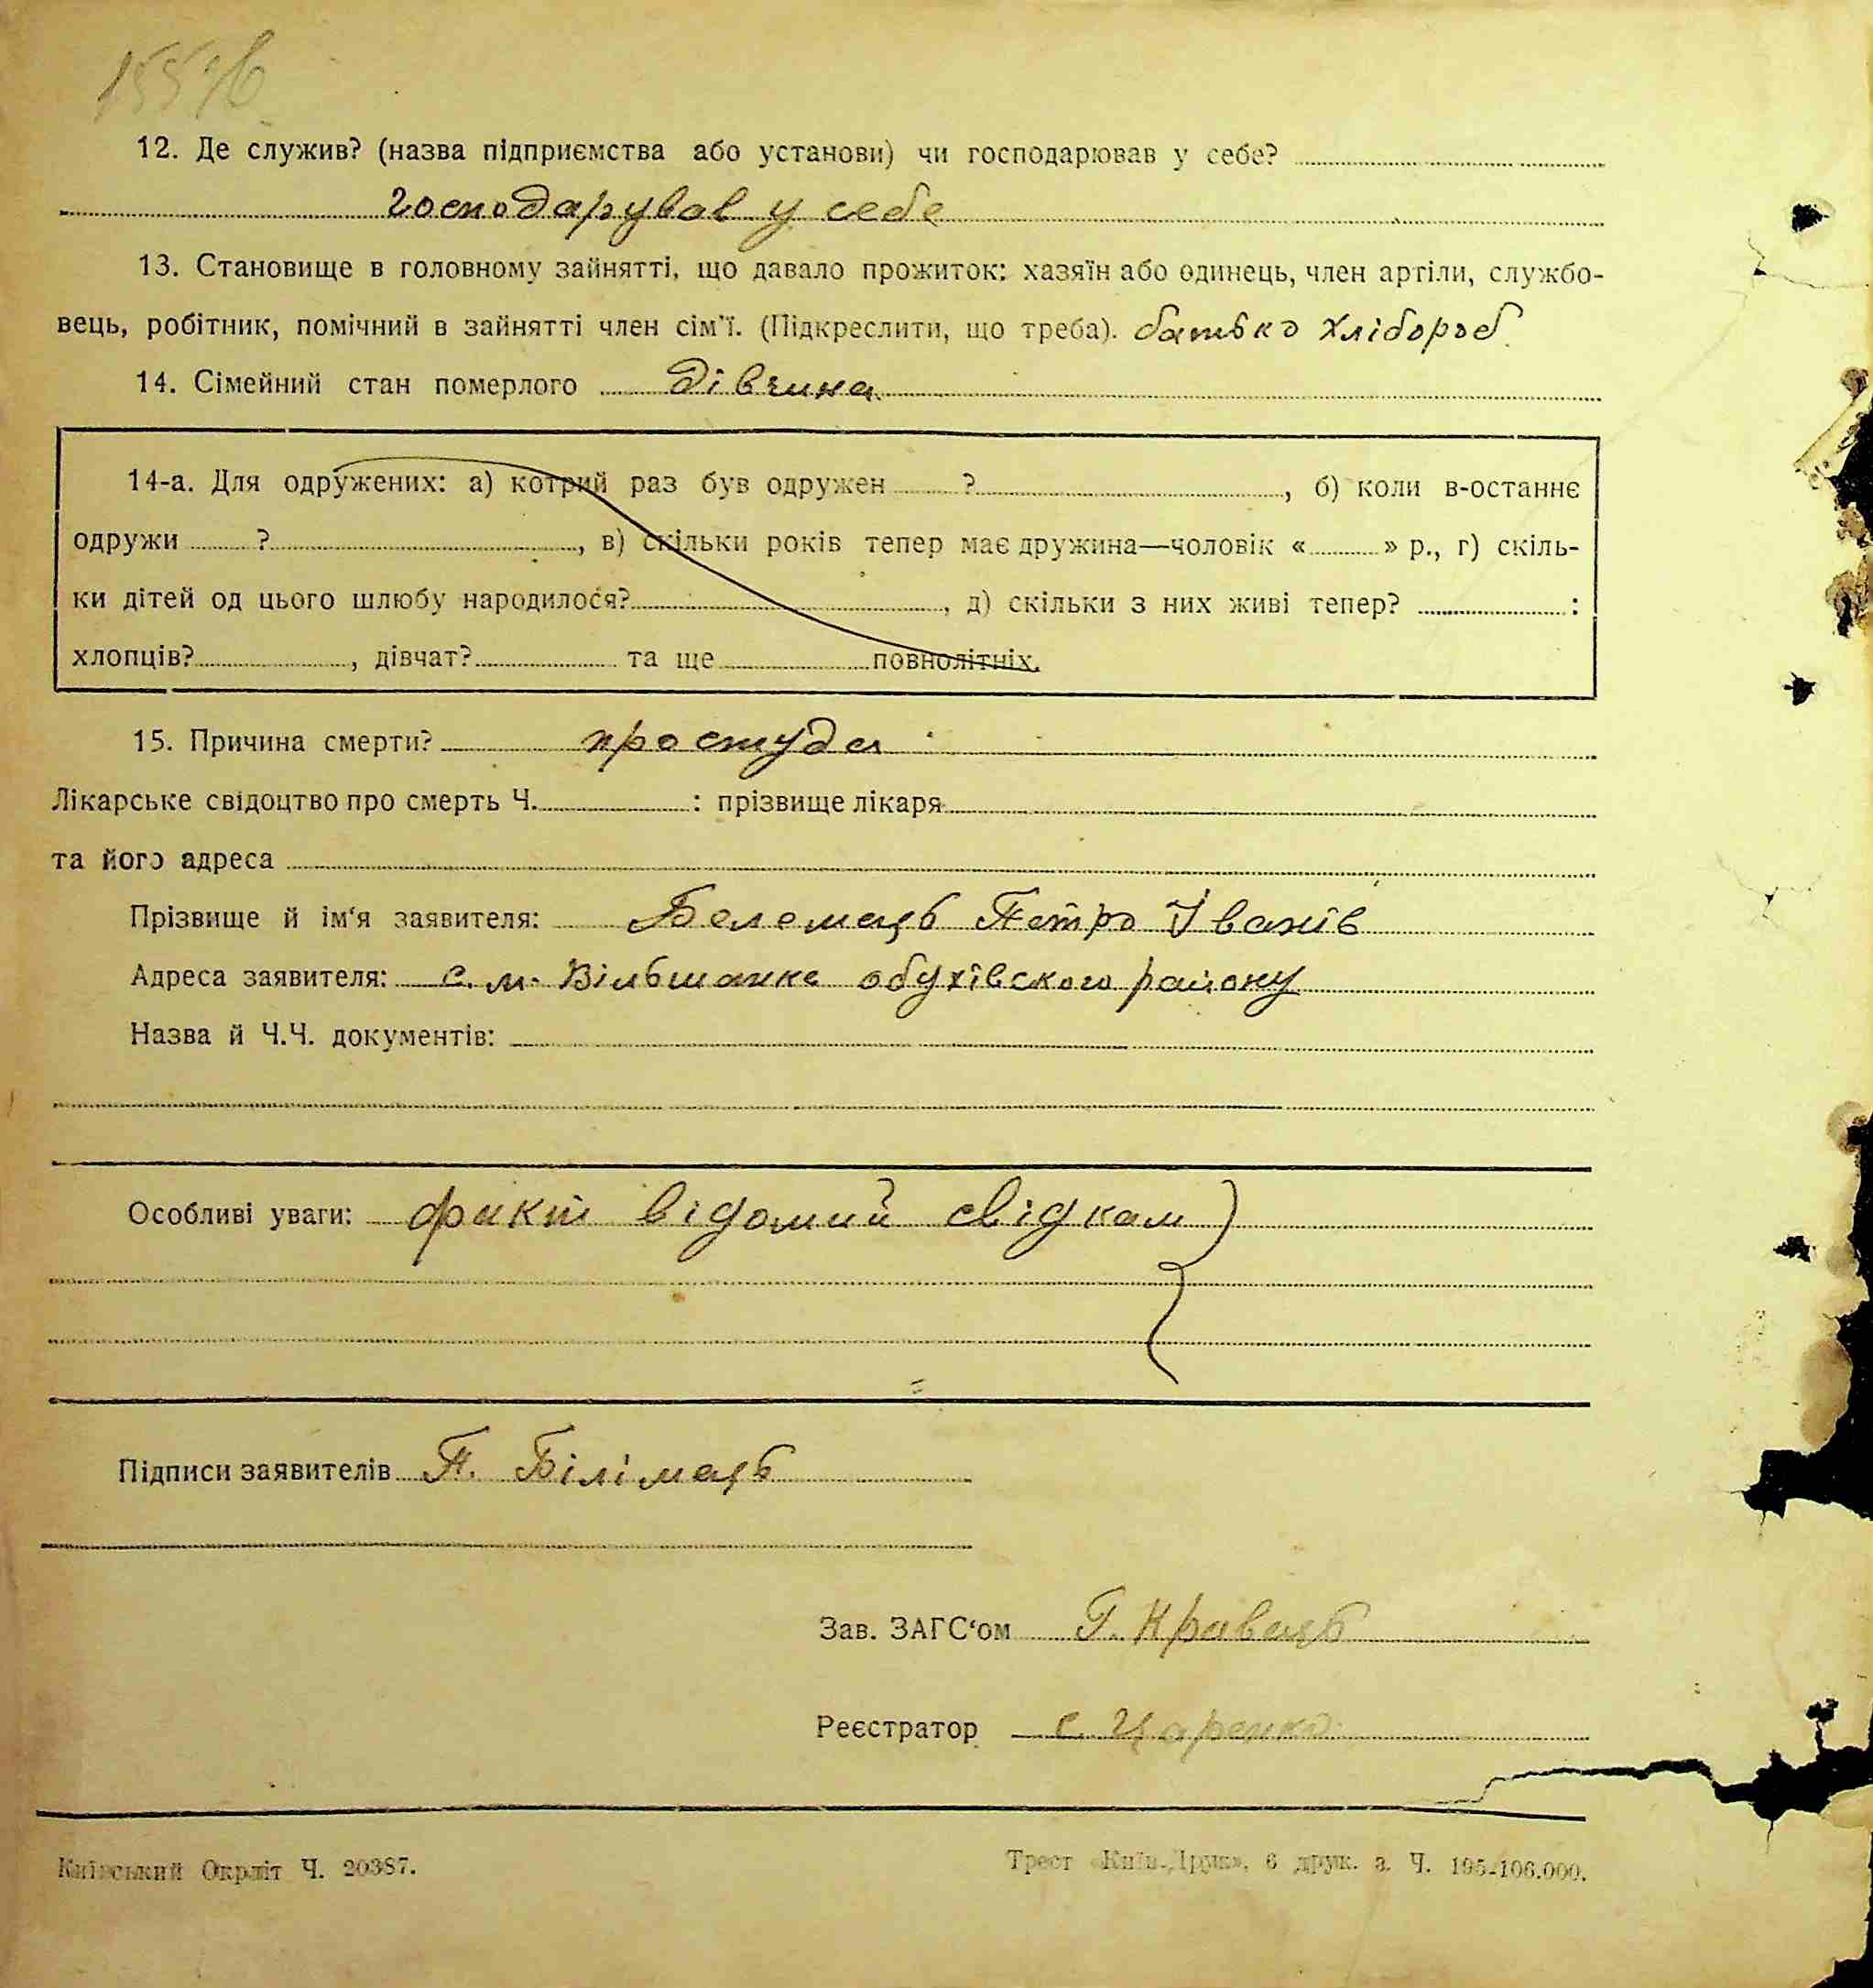 12. Де служив? (назва підприємства або установи) чи господарював у себе?
господарував у себе
13. Становище в головному зайнятті, що давало прожиток: хазяїн або одинець, член артіли, службо-
вець, робітник, помічний в зайнятті член сім'ї. (Підкреслити, що треба). батько хлібороб
14. Сімейний стан померлого дівчина
14-а. Для одружених: а) котрий раз був одружен ?, б) коли в-останнє
одружи ?, в) скільки років тепер має дружина—чоловік « » р., г) скіль-
ки дітей од цього шлюбу народилося?, д) скільки з них живі тепер? :
хлопців?, дівчат? та ще повнолітніх.
15. Причина смерти? простуда
Лікарське свідоцтво про смерть Ч. : прізвище лікаря
та його адреса
Прізвище й ім'я заявителя: Белемець Петро Іванів
Адреса заявителя: с. м. Вільшанка обухівского району
Назва й Ч.Ч. документів:
Особливі уваги: факт відомий свідкам
Підписи заявителів П. Білімець
Зав. ЗАГС'ом Г. Кравець
Реєстратор С. Царенко
Київський Окрліт Ч. 20387.
Трест «Київ-Друк», 6 друк. з. Ч. 195-106.000.